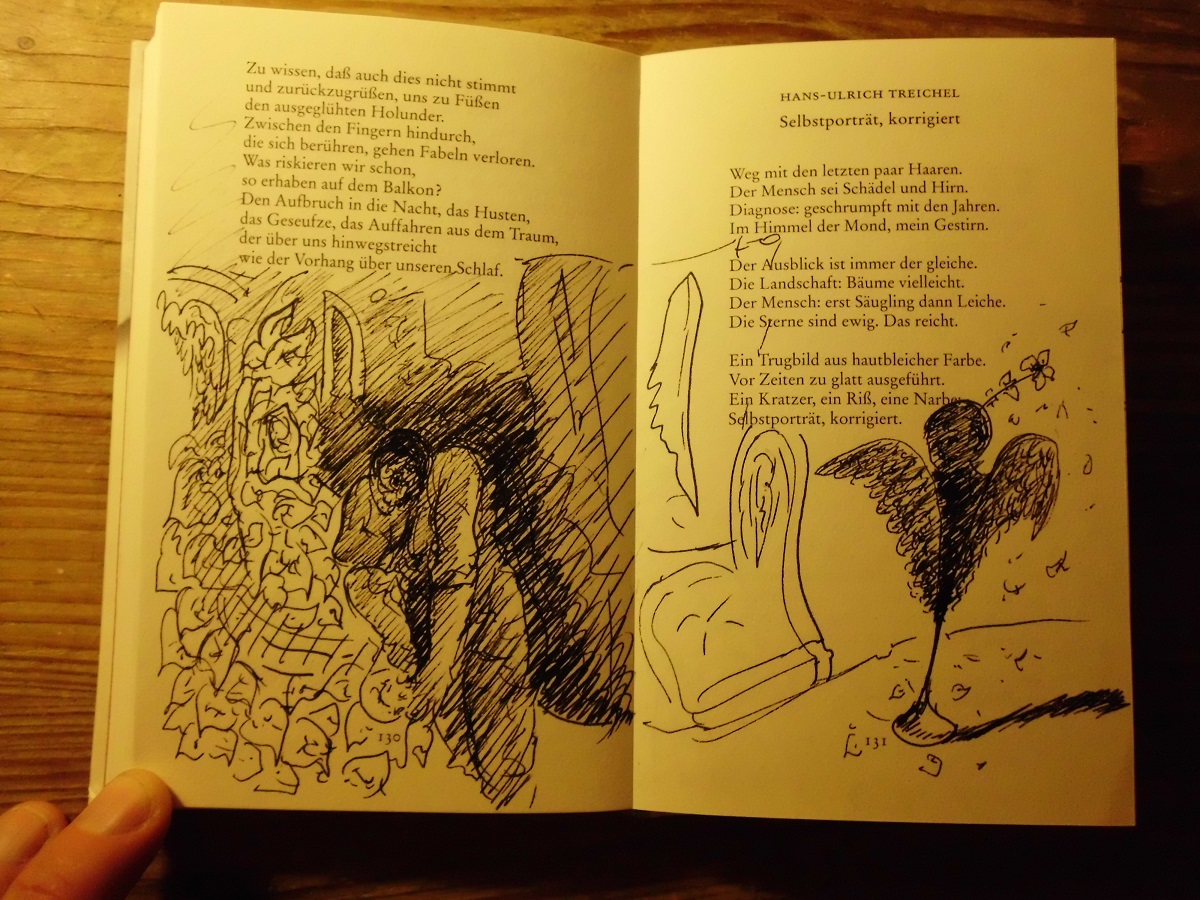 Zu wissen, daß auch dies nicht stimmt
und zurückzugrüßen, uns zu Füßen
den ausgeglühten Holunder.
Zwischen den Fingern hindurch,
die sich berühren, gehen Fabeln verloren.
Was riskieren wir schon,
so erhaben auf dem Balkon?
Den Aufbruch in die Nacht, das Husten,
das Geseufze, das Auffahren aus dem Traum,
der über uns hinwegstreicht
wie der Vorhang über unseren Schlaf.
130
HANS-ULRICH TREICHEL
Selbstporträt, korrigiert
Weg mit den letzten paar Haaren.
Der Mensch sei Schädel und Hirn.
Diagnose: geschrumpft mit den Jahren.
Im Himmel der Mond, mein Gestirn.
Der Ausblick ist immer der gleiche.
Die Landschaft: Bäume vielleicht.
Der Mensch: erst Säugling dann Leiche.
Die Sterne sind ewig. Das reicht.
Ein Trugbild aus hautbleicher Farbe.
Vor Zeiten zu glatt ausgeführt.
Ein Kratzer, ein Riß, eine Narbe:
Selbstporträt, korrigiert.
131